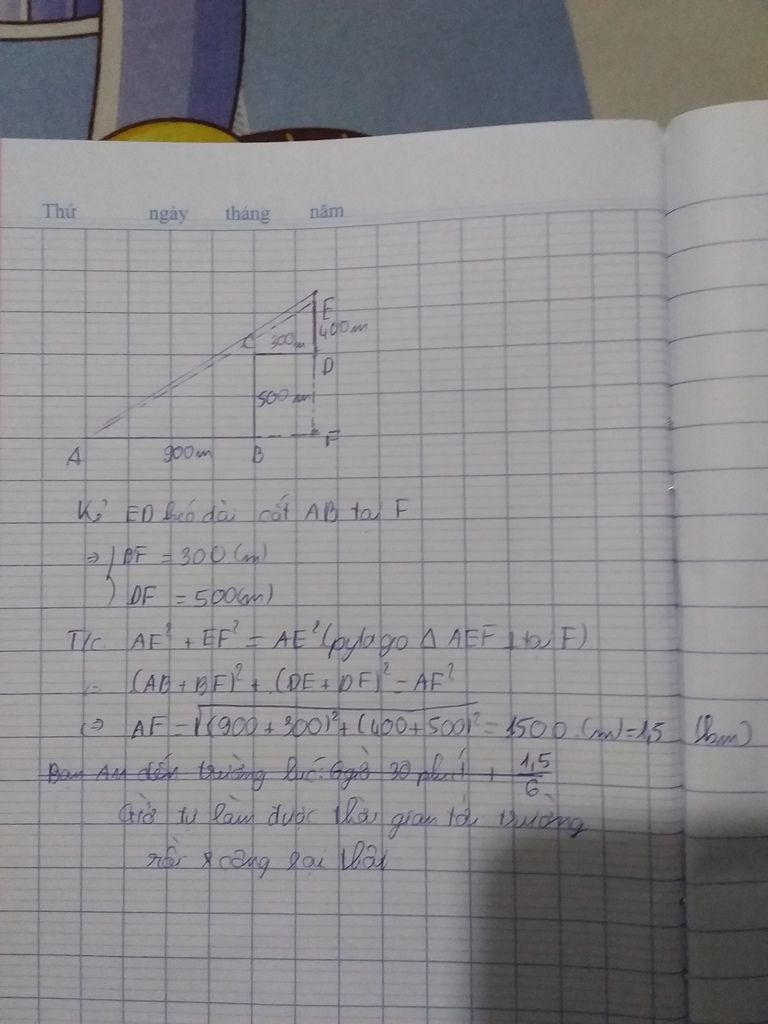 Thứ ngày tháng năm
E
400m
C 300m
D
500m
A 900m B F
Kẻ ED kéo dài cắt AB tại F
=> BF = 300 (m)
DF = 500(m)
T/c AF² + EF² = AE² (pytago Δ AEF ⊥ tại F)
(AB + BF)² + (DE + DF)² = AE²
=> AE = √(900 + 300)² + (400 + 500)² = 1500 (m) = 1,5 (km)
Bạn An đến trường lúc: 6giờ 30 phút + 1,5/6
Giờ tự làm được thời gian tới trường
rồi cộng lại thôi